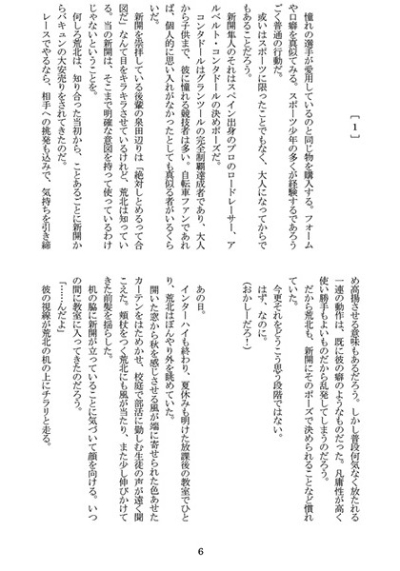 ［１］
憧れの選手が愛用しているのと同じ物を購入する。フォーム
や口癖を真似てみる。スポーツ少年の多くが経験するであろう
ごく普通の行動だ。
或いはスポーツに限ったことでもなく、大人になってからで
もあることだろう。
新開隼人のそれはスペイン出身のプロのロードレーサー、ア
ルベルト・コンタドールの決めポーズだ。
コンタドールはグランツールの完全制覇達成者であり、大人
から子供まで、彼に憧れる競技者は多い。自転車ファンであれ
ば、個人的に思い入れがなかったとしても真似る者がいるくら
いだ。
新開を崇拝している後輩の泉田辺りは「絶対しとめるって合
図だ」なんて目をキラキラさせているけれど、荒北は知ってい
る。当の新開は、そこまで明確な意図を持って使っているわけ
じゃないということを。
何しろ荒北は、知り合った当初から、ことあるごとに新開か
らバキュンの大安売りをされてきたのだ。
レースでやるなら、相手への挑発も込みで、気持ちを引き締
め高揚させる意味もあるだろう。しかし普段何気なく放たれる
一連の動作は、既に彼の癖のようなものだった。凡庸性が高く
使い勝手もよいものだから乱発してしまうのだろう。
だから荒北も、新開にそのポーズで決められることなど慣れ
ていた。
今更それをどうこう思う段階ではない。
はず、なのに。
（おかしーだろ！）
あの日。
インターハイも終わり、夏休みも明けた放課後の教室でひと
り、荒北はぼんやり外を眺めていた。
開いた窓から秋を感じさせる風が端に寄せられた色あせた
カーテンをはためかせ、校庭で部活に勤しむ生徒の声が遠く聞
こえた。頬杖をつく荒北にも風が当たり、また少し伸びかけて
きた前髪を揺らした。
机の脇に新開が立っていることに気づいて顔を向ける。いつ
の間に教室に入ってきたのだろう。
「……んだよ」
彼の視線が荒北の机の上にチラリと走る。
6